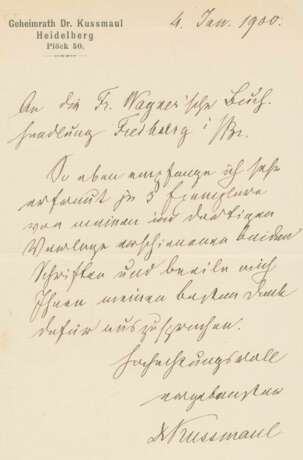 Geheimrath Dr. Kussmaul
Heidelberg
Plöck 50.
4. Jan. 1900.
An die Fr. Wagner'sche Buch-
handlung Freiberg i/Br.
So eben empfange ich sehr
erfreut je 3 Exemplare
von meinen im dortigen
Verlage erschienenen beiden
Schriften und beeile mich
Ihnen meinen besten Dank
dafür auszusprechen.
Hochachtungsvoll
ergebenster
Dr Kussmaul